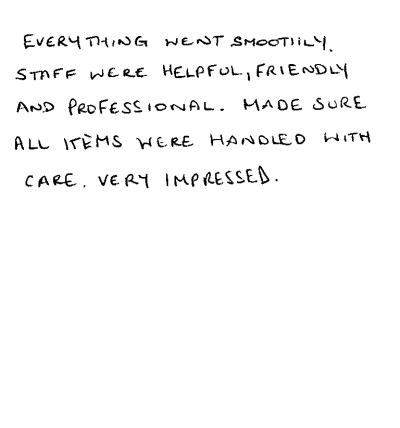 EVERYTHING WENT SMOOTHLY.
STAFF WERE HELPFUL, FRIENDLY
AND PROFESSIONAL. MADE SURE
ALL ITEMS WERE HANDLED WITH
CARE. VERY IMPRESSED.